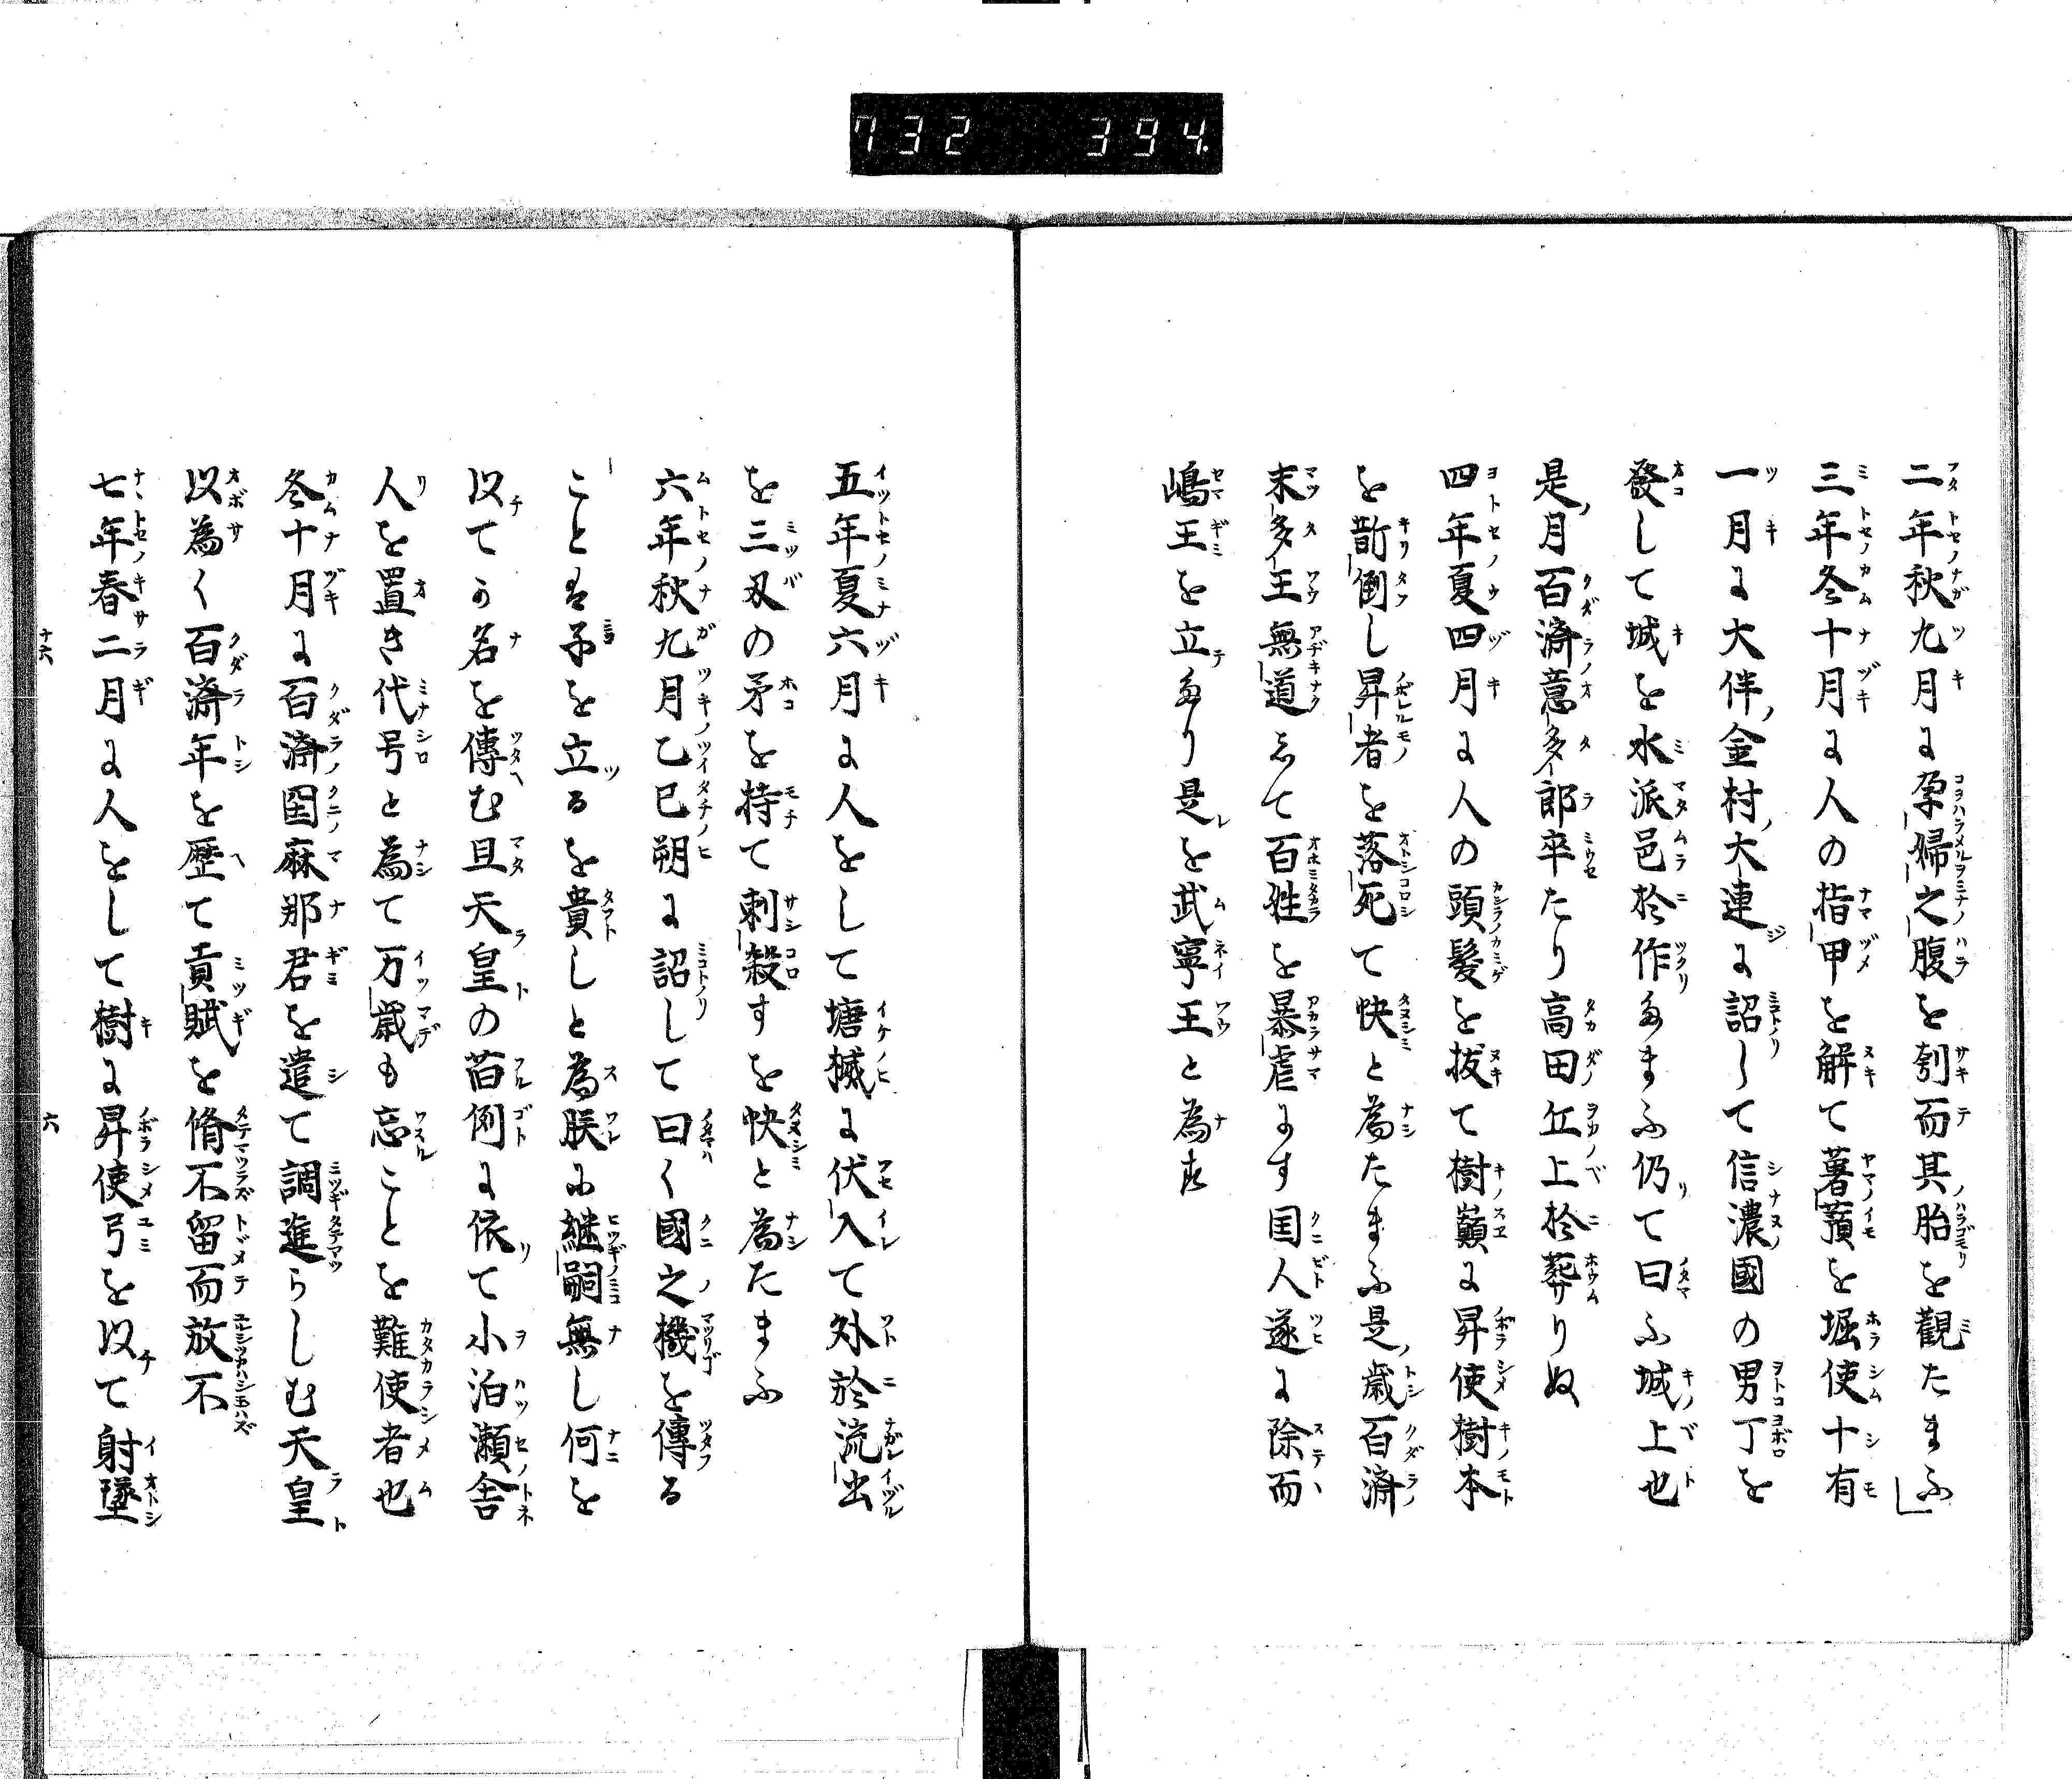 732 394.
二年秋九月に孕婦之腹を刳而其胎を觀たまふ
三年冬十月に人の指甲を解て薯蕷を堀使十有
一月に大伴金村大連に詔して信濃國の男丁を
發して城を水派邑於作たまふ仍て曰ふ城上也
是月百済意多郎卒たり高田丘上於葬りぬ
四年夏四月に人の頭髮を抜て樹巓に昇使樹本
を斮倒し昇者を落死て快と為たまふ是歳百済
末多王無道して百姓を暴虐にす国人遂に除而
嶋王を立たり是を武寧王と為す
五年夏六月に人をして塘楲に伏入て外於流出
を三刄の矛を持て刺殺すを快と為たまふ
六年秋九月乙巳朔に詔して曰く國之機を傳る
ことは子を立るを貴しと為朕に継嗣無し何を
以てか名を傳む且天皇の旧例に依て小泊瀬舎
人を置き代号と為て万歳も忘ことを難使者也
冬十月に百済国麻那君を遣て調進らしむ天皇
以為く百済年を歴て貢賦を脩不留而放不
七年春二月に人をして樹に昇使弓を以て射墜
十六
六